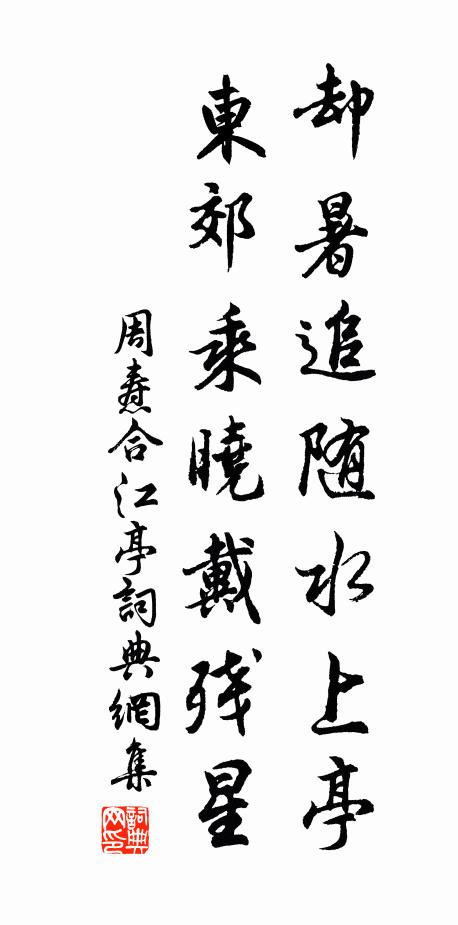 却暑追随水上亭
東郊乘曉戴残星
周燾合江亭詞典網集
詞典网印